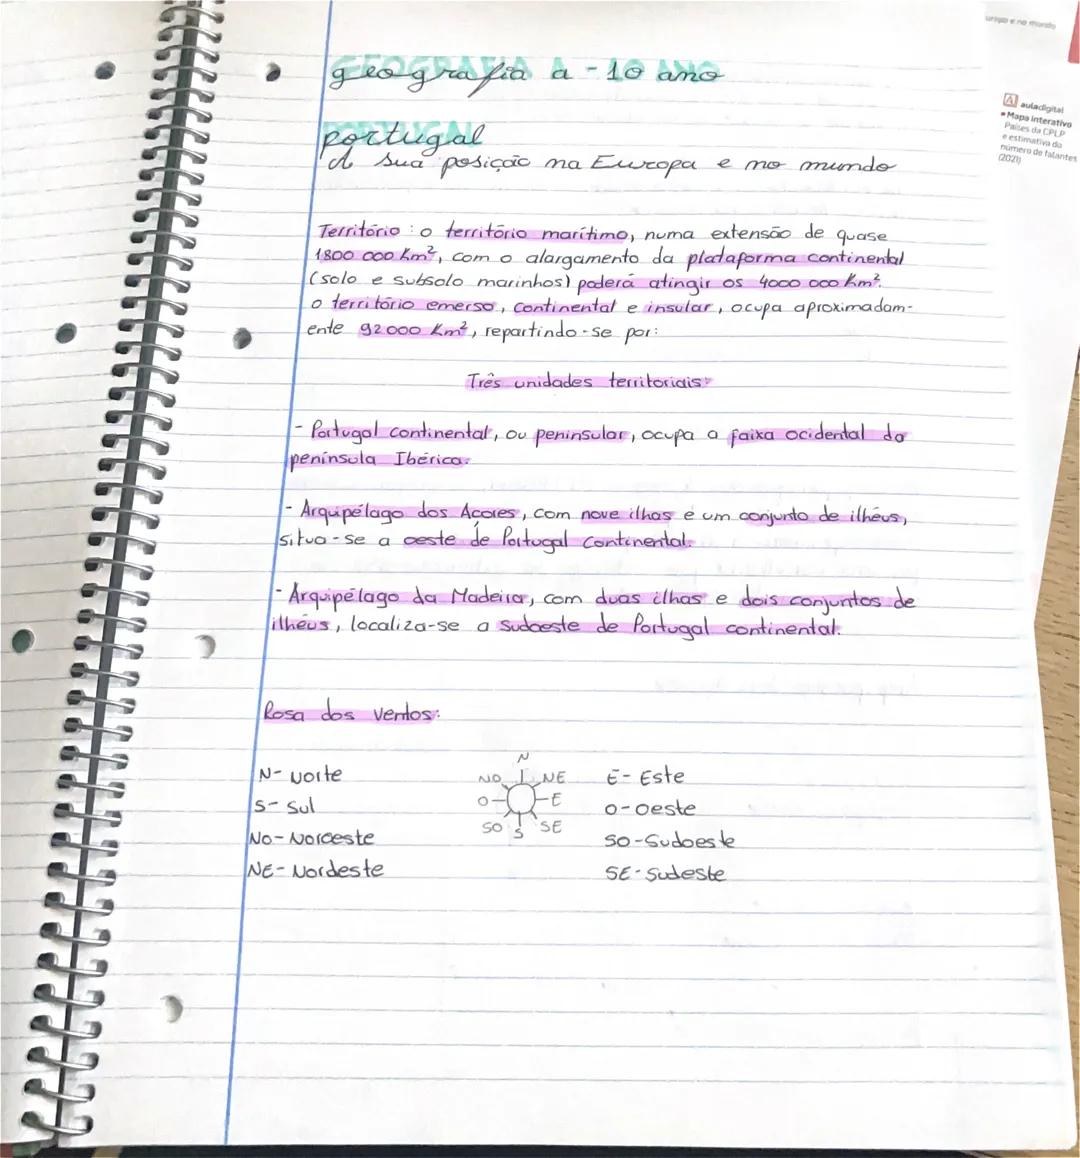 GEOGRAFIA
geografia a - 10 ano
PORTUGAL
portugal
A sua posição na Europa e no mundo
Território: o território marítimo, numa extensão de quase
1800 000 Km², com o alargamento da plataforma continental
(solo e subsolo marinhos) poderá atingir os 4000 000 Km².
o território emerso, continental e insular, ocupa aproximadam-
ente 92000 Km², repartindo-se por:
Três unidades territoriais:
- Portugal continental, ou peninsular, ocupa a faixa ocidental da
península Ibérica.
- Arquipélago dos Açores, com nove ilhas e um conjunto de ilhéus,
situa-se a oeste de Portugal Continental.
- Arquipélago da Madeira, com duas ilhas e dois conjuntos de
ilhéus, localiza-se a sudoeste de Portugal continental.
Rosa dos ventos:
N
N- Norte NO NE E- Este
S- Sul O E O-Oeste
SO S SE
NO-Noroeste SO-Sudoeste
NE-Nordeste SE-Sudeste
europa e no mundo
A auladigital
Mapa interativo
Países da CPLP
e estimativa do
número de falantes
(2021)